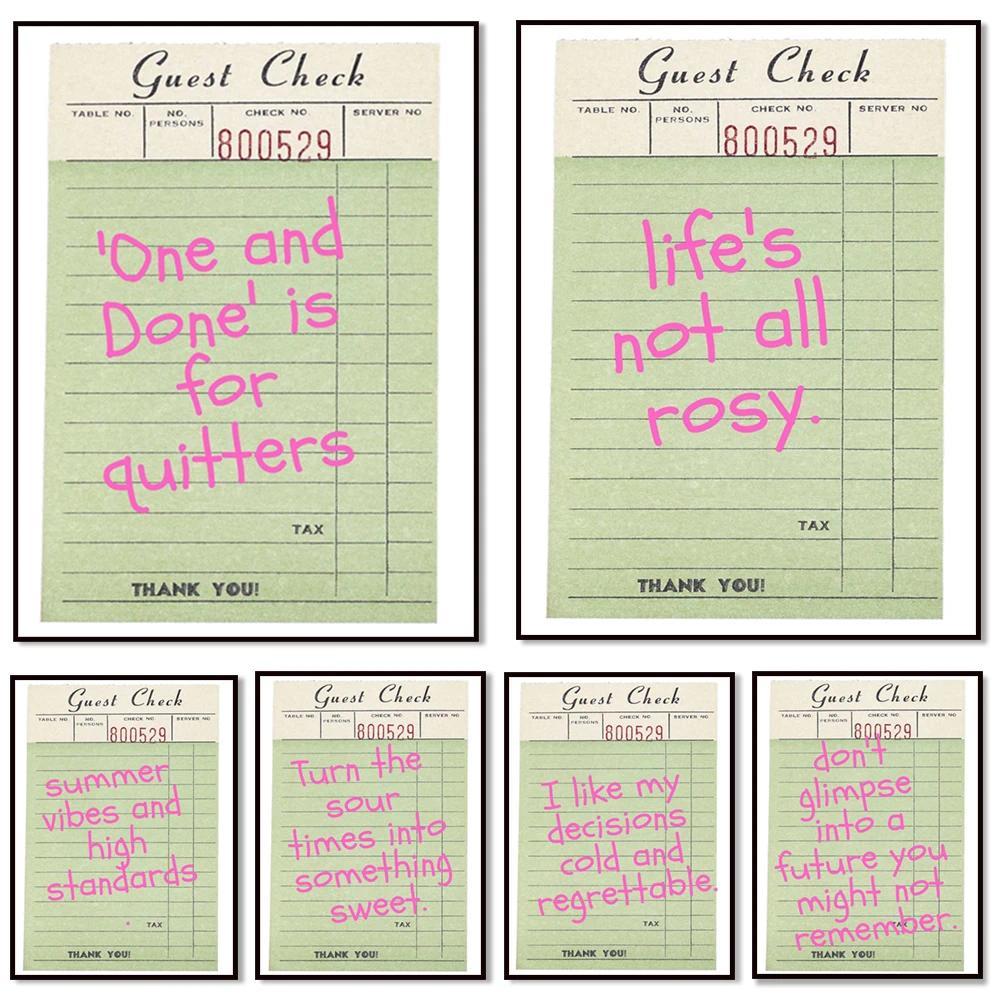 Guest Check
TABLE NO.
NO. PERSONS
CHECK NO.
SERVER NO
800529
'One and
Done' is
for
quitters
TAX
THANK YOU!
Guest Check
TABLE NO.
NO. PERSONS
CHECK NO.
SERVER NO
800529
life's
not all
rosy.
TAX
THANK YOU!
Guest Check
TABLE NO
NO. PERSONS
CHECK NO.
SERVER NO
800529
summer
vibes and
high
standards
.
TAX
THANK YOU!
Guest Check
TABLE NO
NO. PERSONS
CHECK NO.
SERVER NO
800529
Turn the
sour
times into
something
sweet.
TAX
THANK YOU!
Guest Check
TABLE NO
NO. PERSONS
CHECK NO.
SERVER NO
800529
I like my
decisions
cold and
regrettable.
TAX
THANK YOU!
Guest Check
TABLE NO
NO. PERSONS
CHECK NO.
SERVER NO
800529
don't
glimpse
into a
future you
might not
remember.
TAX
THANK YOU!